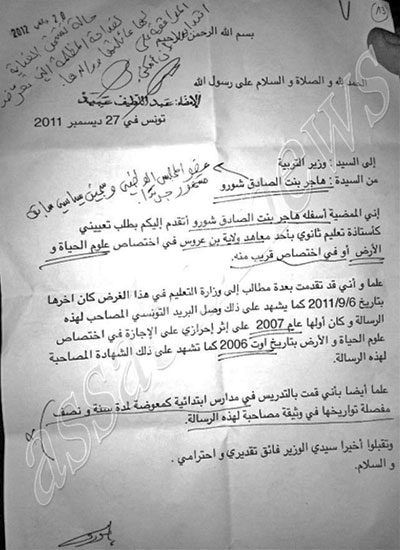 بسم الله الرحمن الرحيم
الحمد لله و الصلاة و السلام على رسول الله
الأستاذ: عبد اللطيف
تونس في 27 ديسمبر 2011
إلى السيد : وزير التربية
من السيدة : هاجر بنت الصادق شورو
إني الممضية أسفله هاجر بنت الصادق شورو أتقدم إليكم بطلب تعييني
كأستاذة تعليم ثانوي بأحد معاهد ولاية بن عروس في اختصاص علوم الحياة و
الأرض أو في اختصاص قريب منه.
علما و أني قد تقدمت بعدة مطالب إلى وزارة التعليم في هذا الغرض كان اخرها
بتاريخ 2011/9/6 كما يشهد على ذلك وصل البريد التونسي المصاحب لهذه
الرسالة و كان أولها عام 2007 على إثر إحرازي على الإجازة في اختصاص
علوم الحياة و الأرض بتاريخ اوت 2006 كما تشهد على ذلك الشهادة المصاحبة
لهذه الرسالة.
علما أيضا بأني قمت بالتدريس في مدارس ابتدائية كمعوضة لمدة سنة و نصف
مفصلة تواريخها في وثيقة مصاحبة لهذه الرسالة.
وتقبلوا أخيرا سيدي الوزير فائق تقديري و احترامي .
و السلام.
assabahnews